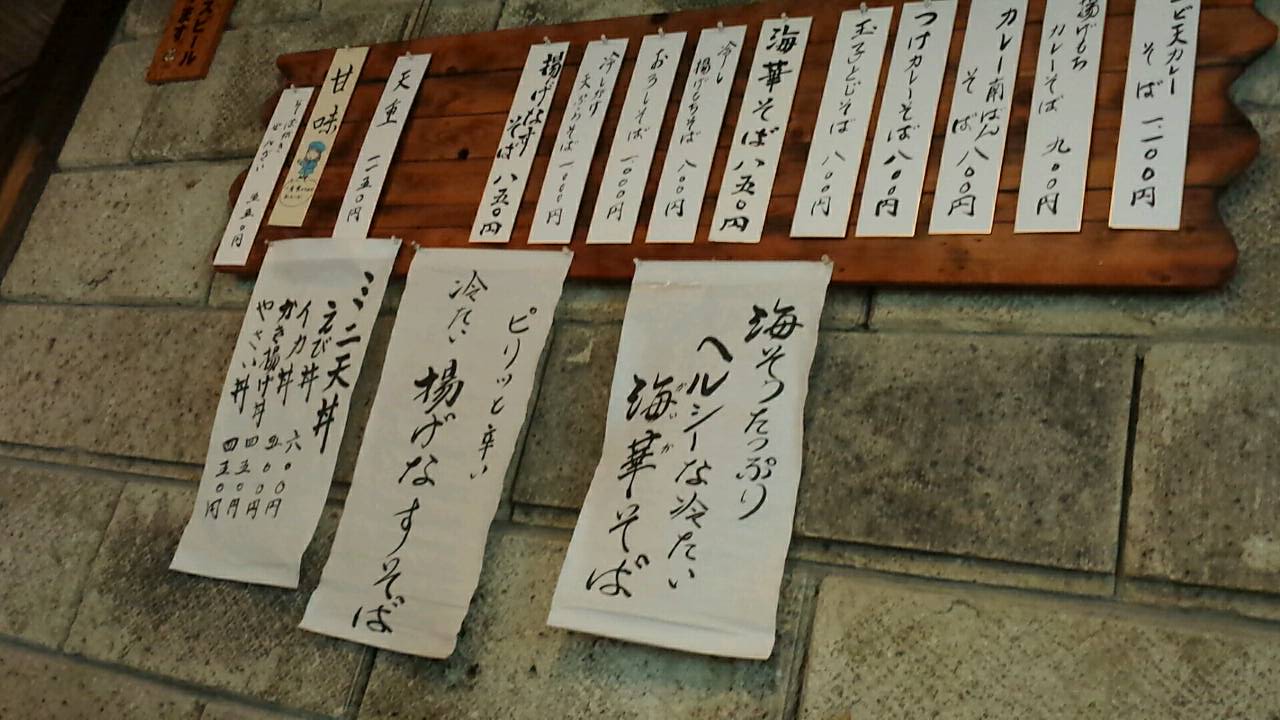 ど天カレー
そば 一、二〇〇円
揚げもち
カレーそば 九〇〇円
カレー南ばん
そば 八〇〇円
つけカレーそば 八〇〇円
玉子とじそば 八〇〇円
海華そば 八五〇円
冷し
揚げもちそば 八〇〇円
おろしそば 一、〇〇〇円
天ぷらそば 一、〇〇〇円
揚げなす
そば 八五〇円
天重 一二五〇円
甘味
五五〇円
スビール
ます
海そうたっぷり
ヘルシーな冷たい
海華そば
がいか
ピリッと辛い
冷たい 揚げなすそば
ミニ天丼
えび丼 六〇〇円
イカ丼 五〇〇円
かき揚げ丼 四五〇円
やさい丼 四五〇円